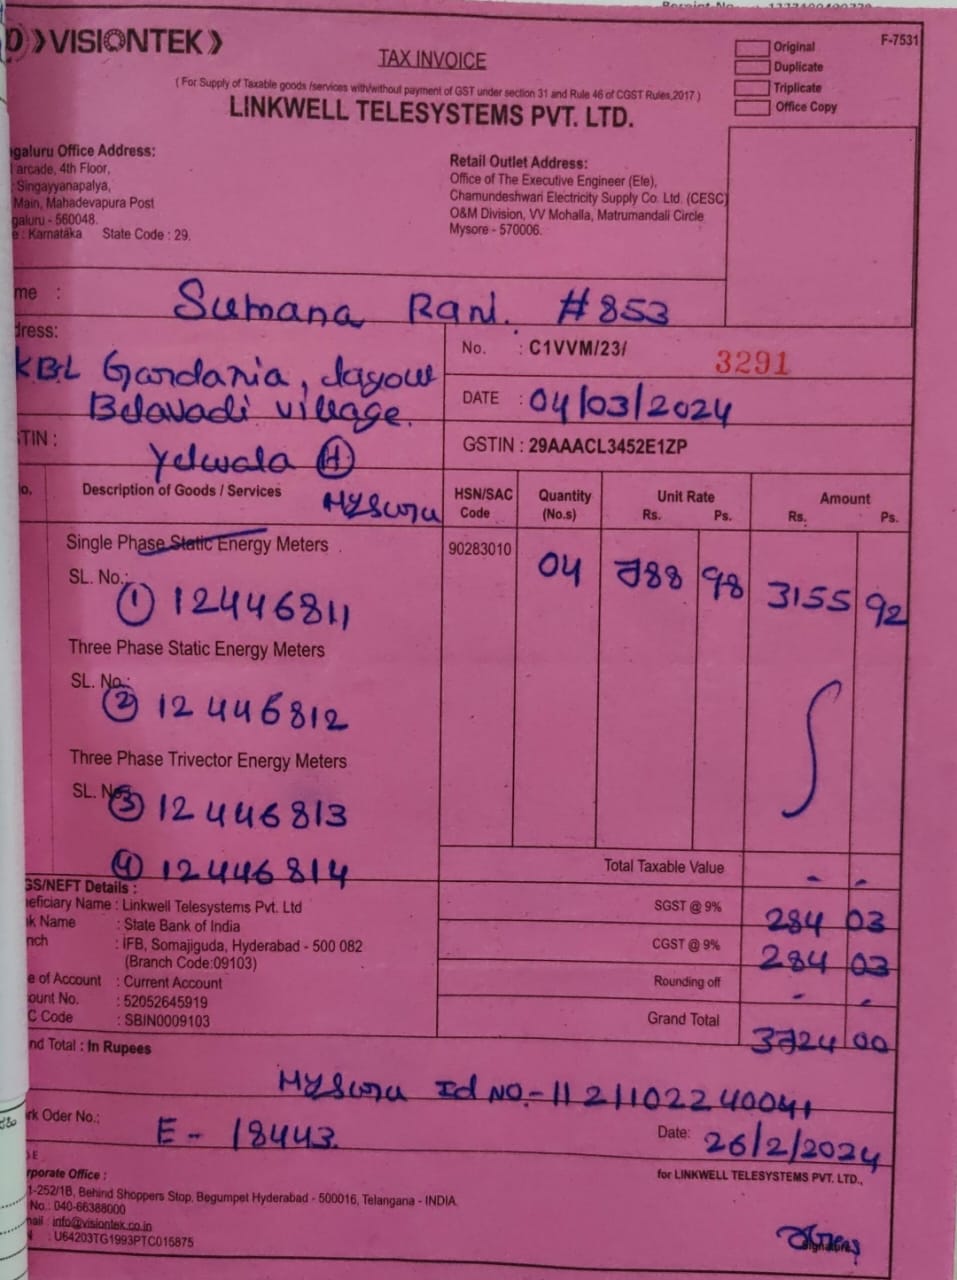 VISIONTEK
TAX INVOICE
F-7531
Original
Duplicate
Triplicate
Office Copy
( For Supply of Taxable goods /services with/without payment of GST under section 31 and Rule 46 of CGST Rules,2017 )
LINKWELL TELESYSTEMS PVT. LTD.
galuru Office Address:
arcade, 4th Floor,
Singayyanapalya,
Main, Mahadevapura Post
galuru - 560048.
e : Karnataka State Code : 29.
Retail Outlet Address:
Office of The Executive Engineer (Ele),
Chamundeshwari Electricity Supply Co. Ltd. (CESC)
O&M Division, VV Mohalla, Matrumandali Circle
Mysore - 570006.
me : Sumana Rani. #853
dress:
KBL Gardania, Layout
Belavadi village.
Yelwala (H)
Mysuru
No. : C1VVM/23/ 3291
DATE : 04/03/2024
TIN :
GSTIN : 29AAACL3452E1ZP
o. Description of Goods / Services HSN/SAC Code Quantity (No.s) Unit Rate Rs. Ps. Amount Rs. Ps.
Single Phase Static Energy Meters 90283010 04 788 98 3155 92
SL. No.: (1) 12446811
Three Phase Static Energy Meters
SL. No.: (2) 12446812
Three Phase Trivector Energy Meters
SL. No. (3) 12446813
(4) 12446814
Total Taxable Value - -
SGST @ 9% 284 03
CGST @ 9% 284 03
Rounding off - -
Grand Total 3724 00
GS/NEFT Details :
eficiary Name : Linkwell Telesystems Pvt. Ltd
k Name : State Bank of India
nch : IFB, Somajiguda, Hyderabad - 500 082
(Branch Code:09103)
e of Account : Current Account
ount No. : 52052645919
C Code : SBIN0009103
nd Total : In Rupees
Mysuru Id NO.- 1121102240041
rk Oder No.: E - 18443.
Date: 26/2/2024
for LINKWELL TELESYSTEMS PVT. LTD.,
rporate Office :
1-252/1B, Behind Shoppers Stop, Begumpet Hyderabad - 500016, Telangana - INDIA.
No.: 040-66388000
mail : info@visiontek.co.in
N : U64203TG1993PTC015875